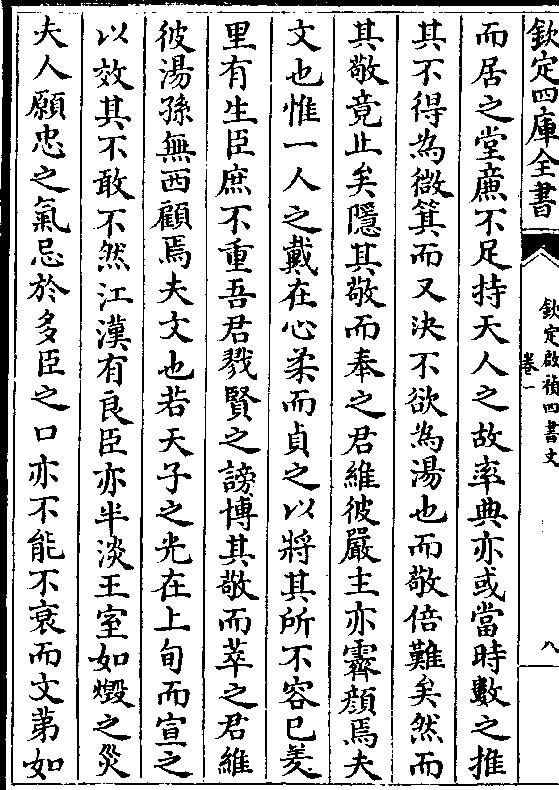 欽定四庫全書
欽定啟禎四書文
卷一
八
而居之堂廉不足持天人之故率典亦或當時數之推
其不得為微箕而又決不欲為湯也而敬倍難矣然而
其敬竟止矣隱其敬而奉之君維彼嚴主亦霽顔焉夫
文也惟一人之戴在心柔而貞之以將其所不容已羑
里有生臣庶不重吾君戮賢之謗博其敬而萃之君維
彼湯孫無西顧焉夫文也若天子之光在上旬而宣之
以效其不敢不然江漢有良臣亦半淡王室如燬之災
夫人願忠之氣忌於多臣之口亦不能不衰而文苐如